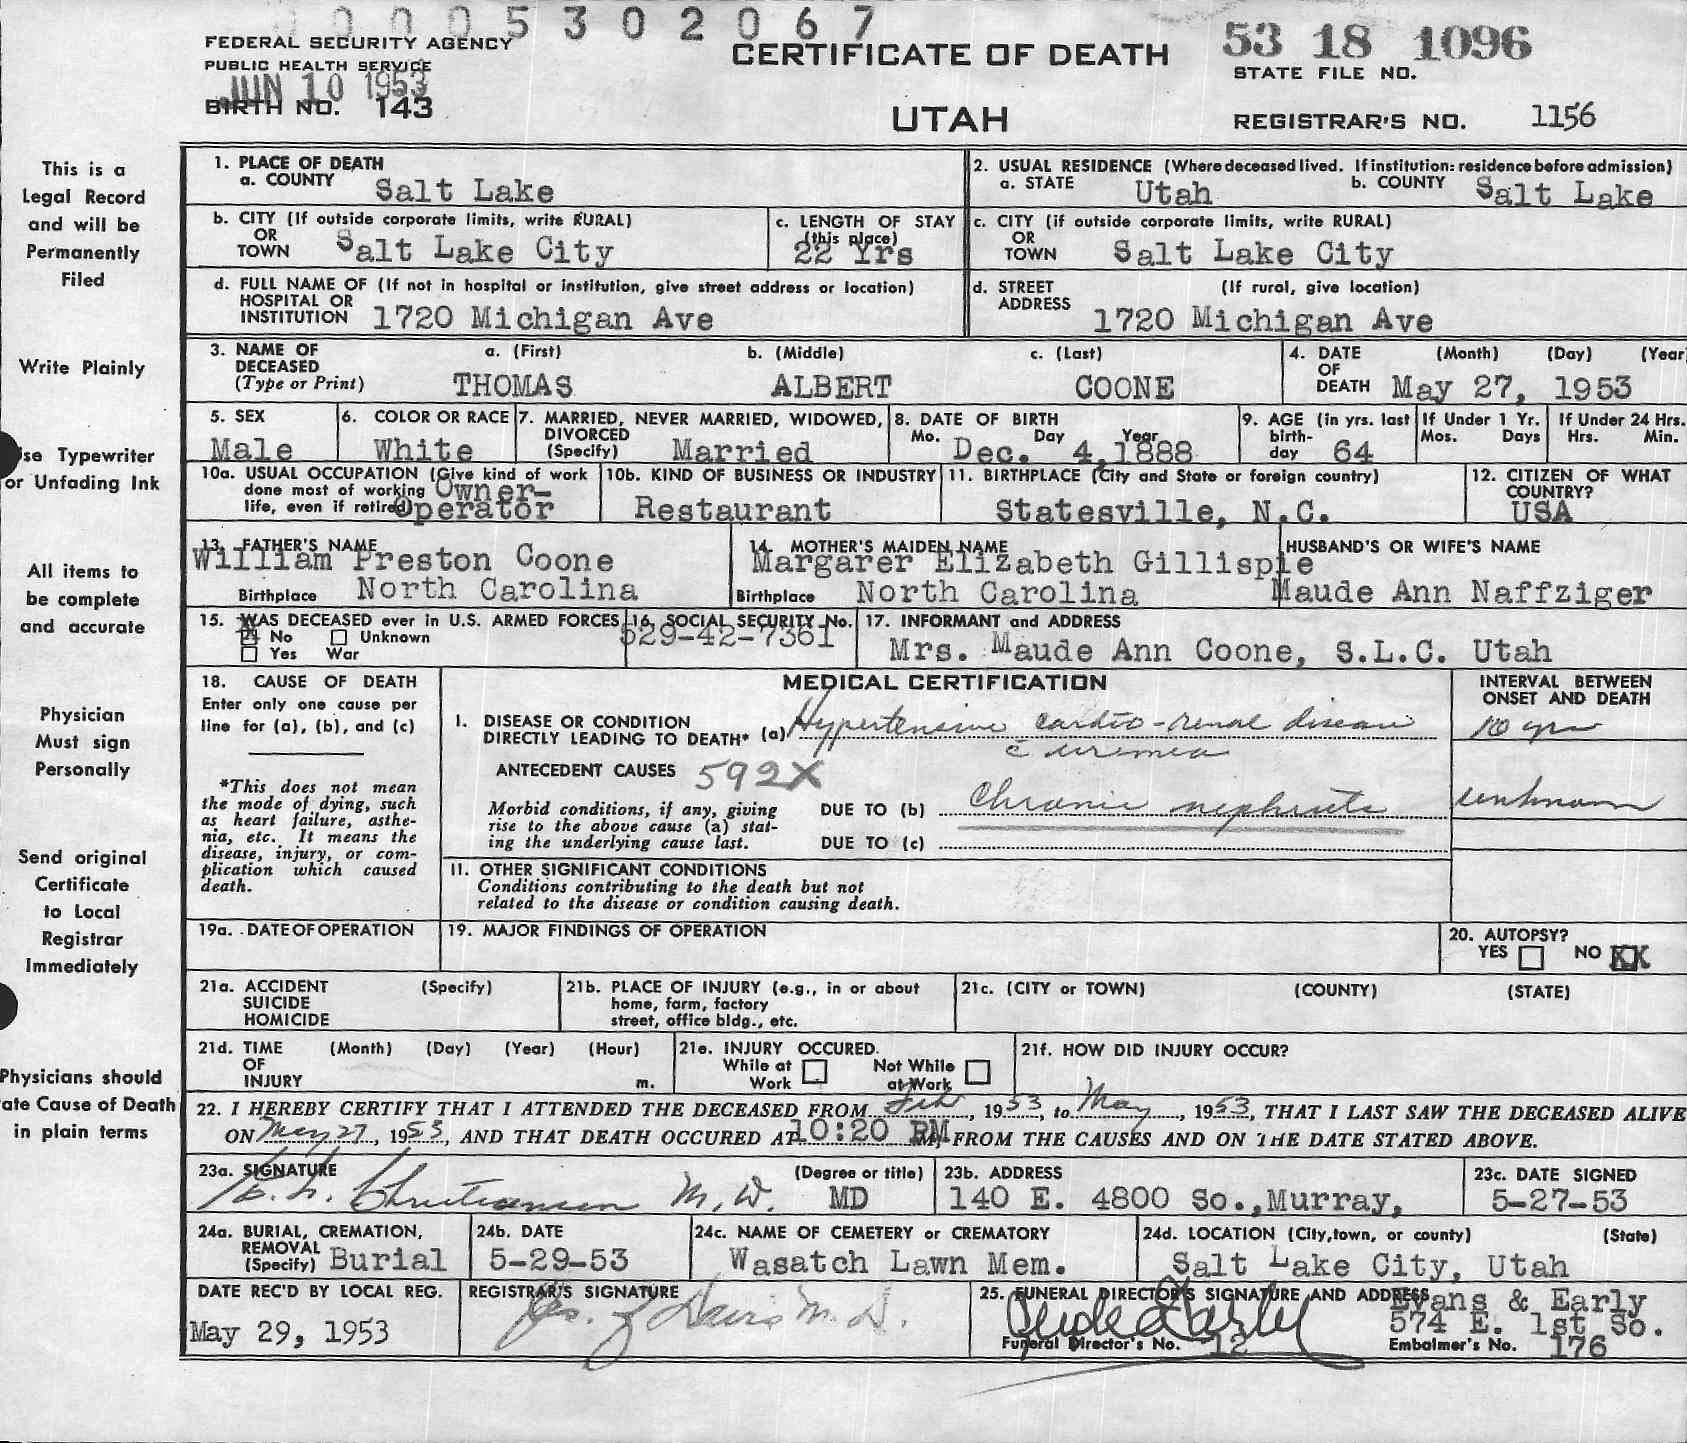 0005302067
FEDERAL SECURITY AGENCY
PUBLIC HEALTH SERVICE
JUN 10 1953
BIRTH NO. 143
CERTIFICATE OF DEATH
UTAH
53 18 1096
STATE FILE NO.
REGISTRAR'S NO. 1156
This is a
Legal Record
and will be
Permanently
Filed
Write Plainly
se Typewriter
or Unfading Ink
All items to
be complete
and accurate
Physician
Must sign
Personally
Send original
Certificate
to Local
Registrar
Immediately
Physicians should
ate Cause of Death
in plain terms
1. PLACE OF DEATH
a. COUNTY Salt Lake
2. USUAL RESIDENCE (Where deceased lived. If institution: residence before admission)
a. STATE Utah b. COUNTY Salt Lake
b. CITY (If outside corporate limits, write RURAL)
OR
TOWN Salt Lake City
c. LENGTH OF STAY
(this place)
22 Yrs
c. CITY (if outside corporate limits, write RURAL)
OR
TOWN Salt Lake City
d. FULL NAME OF (If not in hospital or institution, give street address or location)
HOSPITAL OR
INSTITUTION 1720 Michigan Ave
d. STREET (If rural, give location)
ADDRESS
1720 Michigan Ave
3. NAME OF a. (First) b. (Middle) c. (Last)
DECEASED
(Type or Print) THOMAS ALBERT COONE
4. DATE (Month) (Day) (Year
OF
DEATH May 27, 1953
5. SEX
Male
6. COLOR OR RACE
White
7. MARRIED, NEVER MARRIED, WIDOWED,
DIVORCED
(Specify) Married
8. DATE OF BIRTH
Mo. Day Year
Dec. 4,1888
9. AGE (in yrs. last
birth-
day 64
If Under 1 Yr.
Mos. Days
If Under 24 Hrs.
Hrs. Min.
10a. USUAL OCCUPATION (Give kind of work
done most of working
life, even if retired)
Owner-
Operator
10b. KIND OF BUSINESS OR INDUSTRY
Restaurant
11. BIRTHPLACE (City and State or foreign country)
Statesville, N.C.
12. CITIZEN OF WHAT
COUNTRY?
USA
13. FATHER'S NAME
William Preston Coone
Birthplace North Carolina
14. MOTHER'S MAIDEN NAME
Margarer Elizabeth Gillispie
Birthplace North Carolina
HUSBAND'S OR WIFE'S NAME
Maude Ann Naffziger
15. WAS DECEASED ever in U.S. ARMED FORCES
No Unknown
Yes War
16. SOCIAL SECURITY No.
529-42-7361
17. INFORMANT and ADDRESS
Mrs. Maude Ann Coone, S.L.C. Utah
18. CAUSE OF DEATH
Enter only one cause per
line for (a), (b), and (c)
*This does not mean
the mode of dying, such
as heart failure, asthe-
nia, etc. It means the
disease, injury, or com-
plication which caused
death.
MEDICAL CERTIFICATION
INTERVAL BETWEEN
ONSET AND DEATH
I. DISEASE OR CONDITION
DIRECTLY LEADING TO DEATH* (a) Hypertensive cardio-renal disease 10 yrs
c̄ uremea
ANTECEDENT CAUSES 592X
Morbid conditions, if any, giving
rise to the above cause (a) stat-
ing the underlying cause last.
DUE TO (b) Chronic nephritis unknown
DUE TO (c)
II. OTHER SIGNIFICANT CONDITIONS
Conditions contributing to the death but not
related to the disease or condition causing death.
19a. DATE OF OPERATION
19. MAJOR FINDINGS OF OPERATION
20. AUTOPSY?
YES NO XX
21a. ACCIDENT (Specify)
SUICIDE
HOMICIDE
21b. PLACE OF INJURY (e.g., in or about
home, farm, factory
street, office bldg., etc.
21c. (CITY or TOWN) (COUNTY) (STATE)
21d. TIME (Month) (Day) (Year) (Hour)
OF
INJURY m.
21e. INJURY OCCURED.
While at Not While
Work at Work
21f. HOW DID INJURY OCCUR?
22. I HEREBY CERTIFY THAT I ATTENDED THE DECEASED FROM Feb, 1953, to May, 1953, THAT I LAST SAW THE DECEASED ALIVE
ON May 27, 1953, AND THAT DEATH OCCURED AT 10:20 PM, FROM THE CAUSES AND ON THE DATE STATED ABOVE.
23a. SIGNATURE (Degree or title)
Christiansen M.D. MD
23b. ADDRESS
140 E. 4800 So.,Murray,
23c. DATE SIGNED
5-27-53
24a. BURIAL, CREMATION,
REMOVAL
(Specify) Burial
24b. DATE
5-29-53
24c. NAME OF CEMETERY or CREMATORY
Wasatch Lawn Mem.
24d. LOCATION (City,town, or county) (State)
Salt Lake City, Utah
DATE REC'D BY LOCAL REG.
May 29, 1953
REGISTRAR'S SIGNATURE
Davis M.D.
25. FUNERAL DIRECTOR'S SIGNATURE AND ADDRESS
Evans & Early
574 E. 1st So.
Funeral Director's No. 12
Embalmer's No. 176